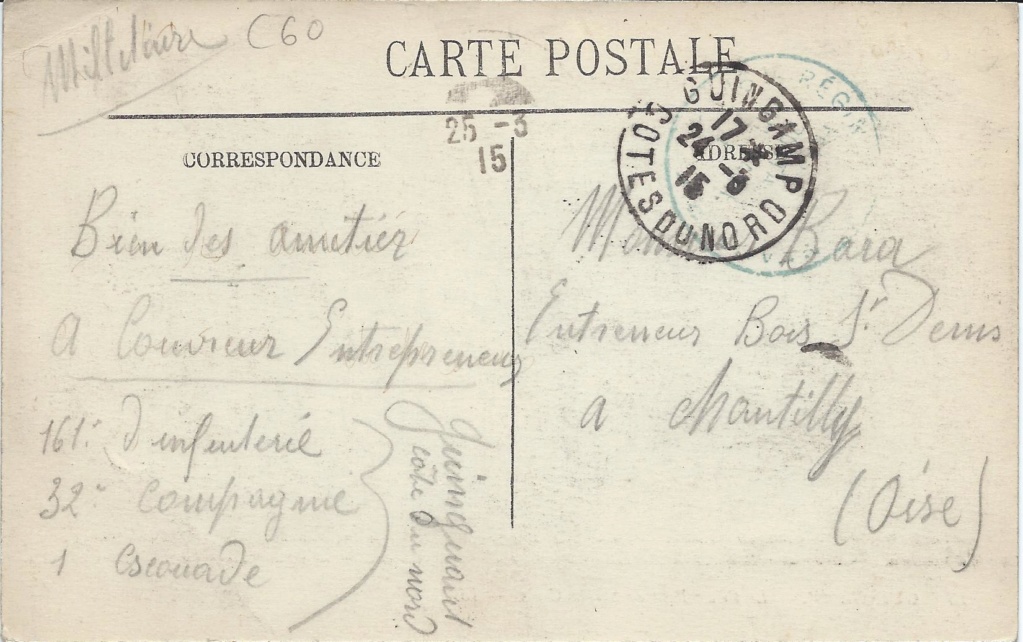 Militaire C60
CARTE POSTALE
25 -3
15
GUINGAMP
17
24 -3
15
COTES DU NORD
RÉGI
CORRESPONDANCE
ADRESSE
Bien des amitiés
A Couvreur Entrepreneur
161e d'infenterie
32e Compagnie
1 escouade
côte du nord
Monsieur Bara
Entreneur Bois St Denis
a Chantilly
(Oise)